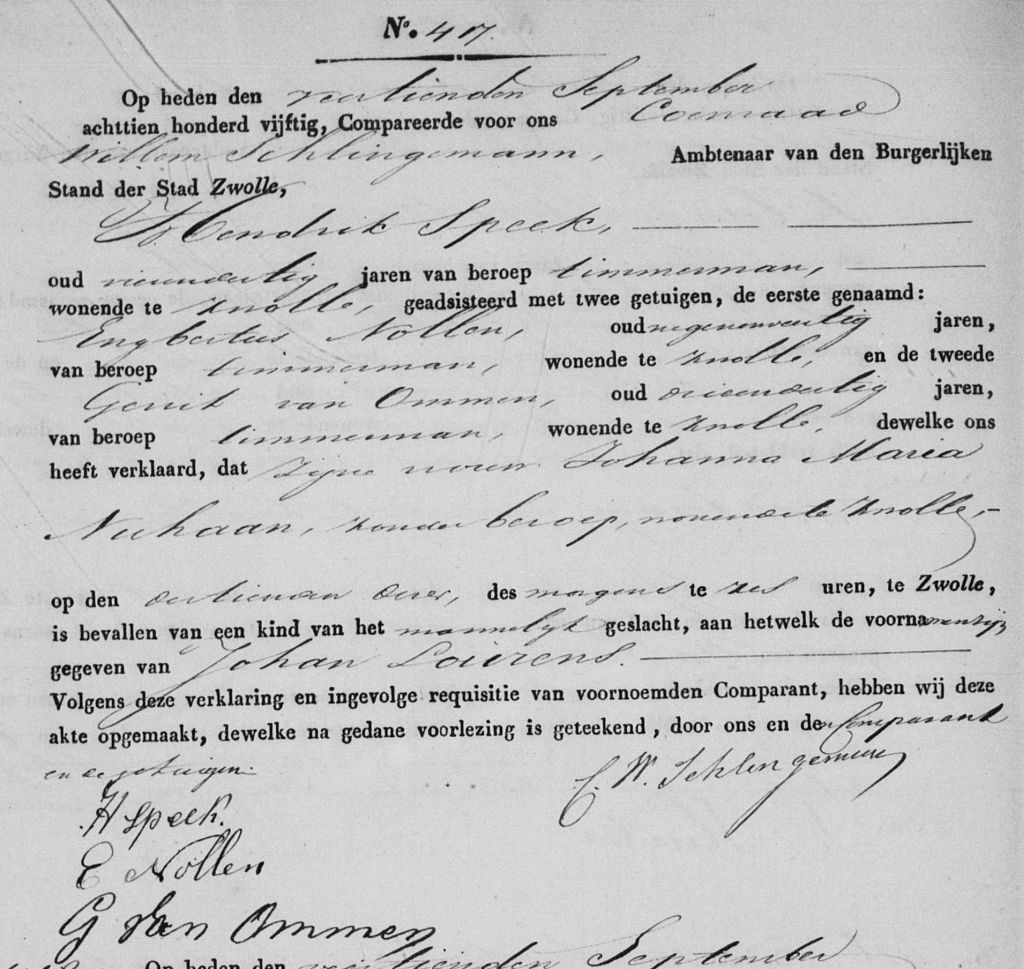 N°. 417.
Op heden den veertienden September
achttien honderd vijftig, Compareerde voor ons Coenraad
Willem Schlingemann, Ambtenaar van den Burgerlijken
Stand der Stad Zwolle,
Hendrik Speek,
oud vierendertig jaren van beroep timmerman,
wonende te Zwolle, geadsisteerd met twee getuigen, de eerste genaamd:
Engbertus Nollen, oud negenenveertig jaren,
van beroep timmerman, wonende te Zwolle, en de tweede
Gerrit van Ommen, oud drieendertig jaren,
van beroep timmerman, wonende te Zwolle, dewelke ons
heeft verklaard, dat zijne vrouw Johanna Maria
Nuhaan, zonder beroep, wonende te Zwolle,
op den dertienden dezer, des morgens te zes uren, te Zwolle,
is bevallen van een kind van het mannelijk geslacht, aan hetwelk de voornamen zijn
gegeven van Johan Lourens.
Volgens deze verklaring en ingevolge requisitie van voornoemden Comparant, hebben wij deze
akte opgemaakt, dewelke na gedane voorlezing is geteekend, door ons en den Comparant
en de getuigen.
C. W. Schlingemann
H Speek.
E Nollen
G Van Ommen
Op heden den veertienden September